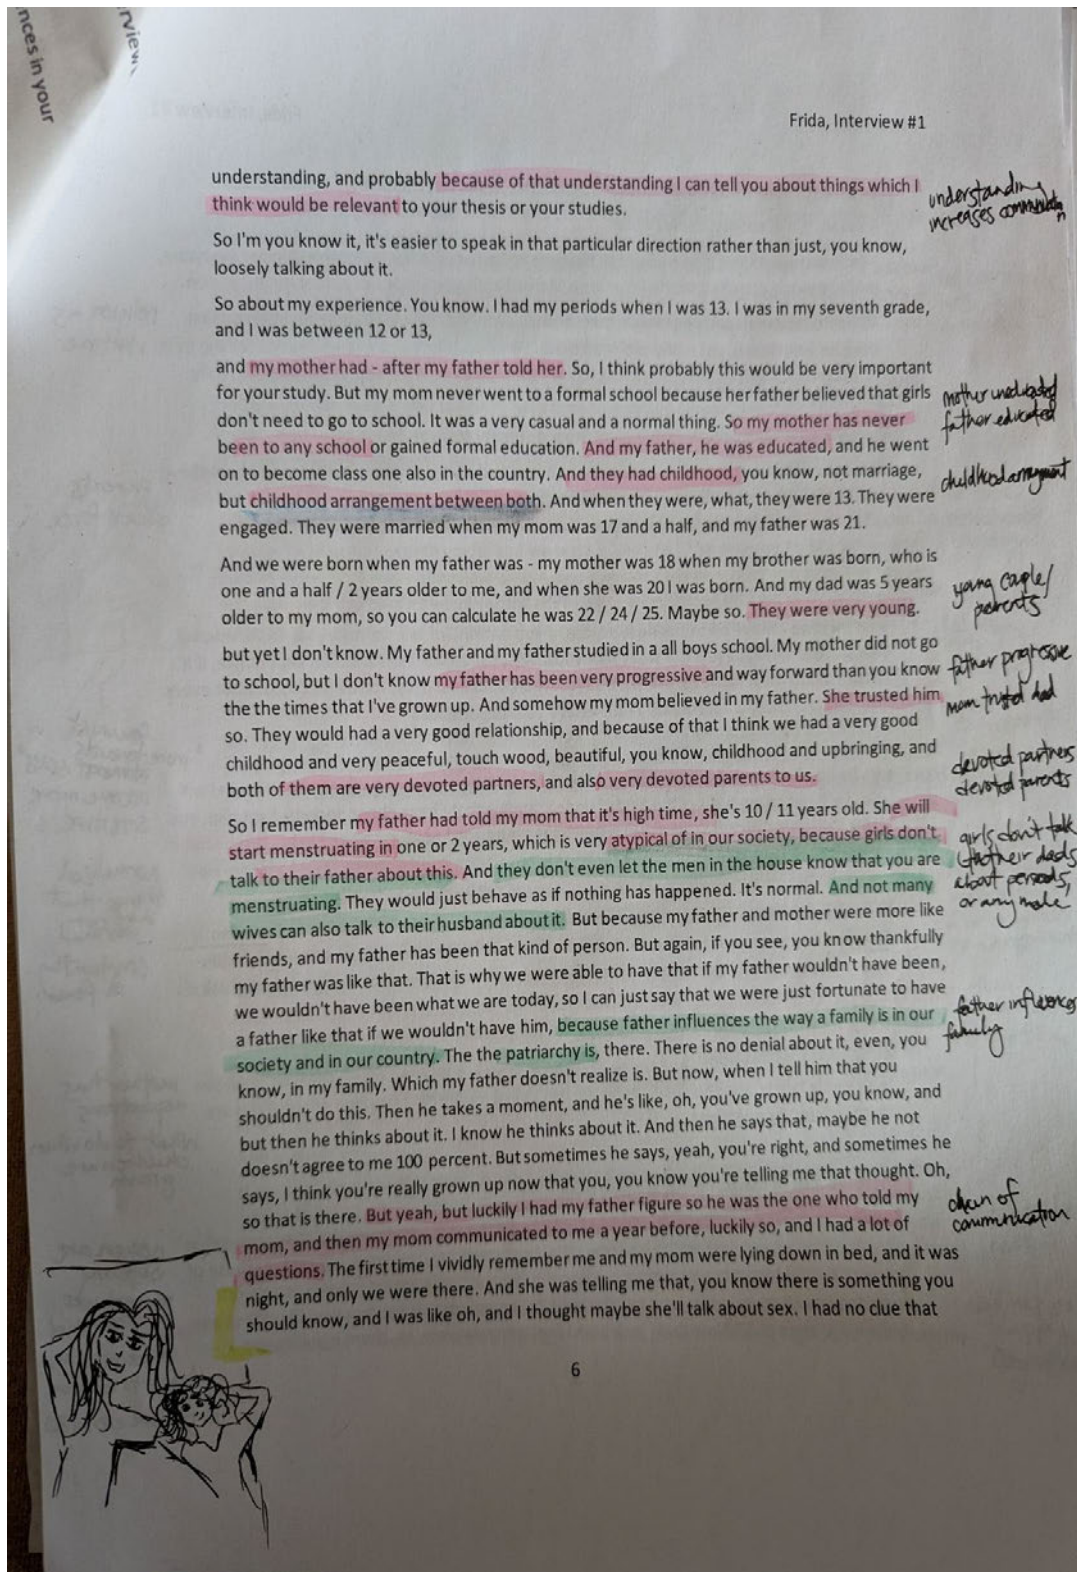 nces in your
rview
Frida, Interview #1
understanding, and probably because of that understanding I can tell you about things which I
think would be relevant to your thesis or your studies.
understanding
increases
So I'm you know it, it's easier to speak in that particular direction rather than just, you know,
loosely talking about it.
So about my experience. You know. I had my periods when I was 13. I was in my seventh grade,
and I was between 12 or 13,
and my mother had - after my father told her. So, I think probably this would be very important
for your study. But my mom never went to a formal school because her father believed that girls
don't need to go to school. It was a very casual and a normal thing. So my mother has never
been to any school or gained formal education. And my father, he was educated, and he went
on to become class one also in the country. And they had childhood, you know, not marriage,
but childhood arrangement between both. And when they were, what, they were 13. They were
engaged. They were married when my mom was 17 and a half, and my father was 21.
mother uneducated
father educated
childhood arrangment
And we were born when my father was - my mother was 18 when my brother was born, who is
one and a half / 2 years older to me, and when she was 20 I was born. And my dad was 5 years
older to my mom, so you can calculate he was 22 / 24 / 25. Maybe so. They were very young.
young couple/
parents
but yet I don't know. My father and my father studied in a all boys school. My mother did not go
to school, but I don't know my father has been very progressive and way forward than you know
the the times that I've grown up. And somehow my mom believed in my father. She trusted him
so. They would had a very good relationship, and because of that I think we had a very good
childhood and very peaceful, touch wood, beautiful, you know, childhood and upbringing, and
both of them are very devoted partners, and also very devoted parents to us.
father progressive
mom trusted dad
devoted partners
devoted parents
So I remember my father had told my mom that it's high time, she's 10 / 11 years old. She will
start menstruating in one or 2 years, which is very atypical of in our society, because girls don't
talk to their father about this. And they don't even let the men in the house know that you are
menstruating. They would just behave as if nothing has happened. It's normal. And not many
wives can also talk to their husband about it. But because my father and mother were more like
friends, and my father has been that kind of person. But again, if you see, you know thankfully
my father was like that. That is why we were able to have that if my father wouldn't have been,
we wouldn't have been what we are today, so I can just say that we were just fortunate to have
a father like that if we wouldn't have him, because father influences the way a family is in our
society and in our country. The the patriarchy is, there. There is no denial about it, even, you
know, in my family. Which my father doesn't realize is. But now, when I tell him that you
shouldn't do this. Then he takes a moment, and he's like, oh, you've grown up, you know, and
but then he thinks about it. I know he thinks about it. And then he says that, maybe he not
doesn't agree to me 100 percent. But sometimes he says, yeah, you're right, and sometimes he
says, I think you're really grown up now that you, you know you're telling me that thought. Oh,
so that is there. But yeah, but luckily I had my father figure so he was the one who told my
mom, and then my mom communicated to me a year before, luckily so, and I had a lot of
questions. The first time I vividly remember me and my mom were lying down in bed, and it was
night, and only we were there. And she was telling me that, you know there is something you
should know, and I was like oh, and I thought maybe she'll talk about sex. I had no clue that
girls don't talk
to their dads
about periods,
or any male
father influences
family
chain of
communication
6